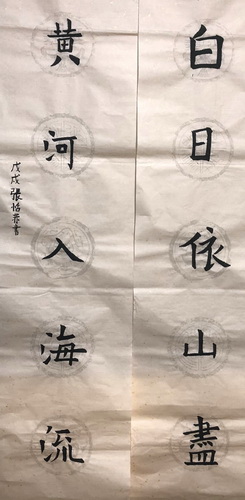 白日依山盡
黄河入海流
戊戌張恬恭書